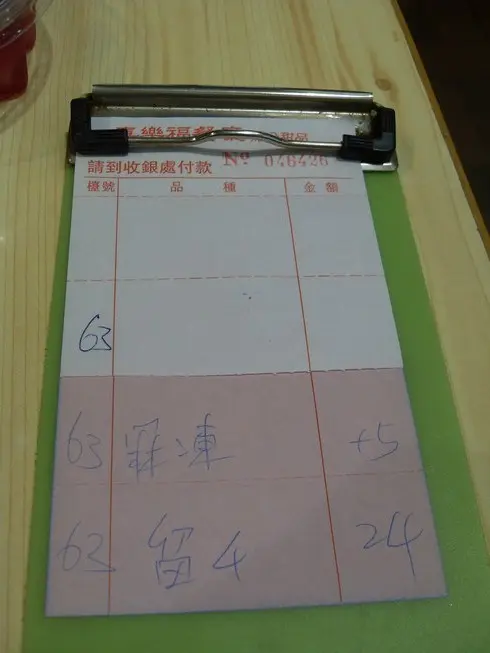 樂福餐 甜品
請到收銀處付款 Nº 046426
檯號 品種 金額
63
63 羅凍 +5
63 留4 24